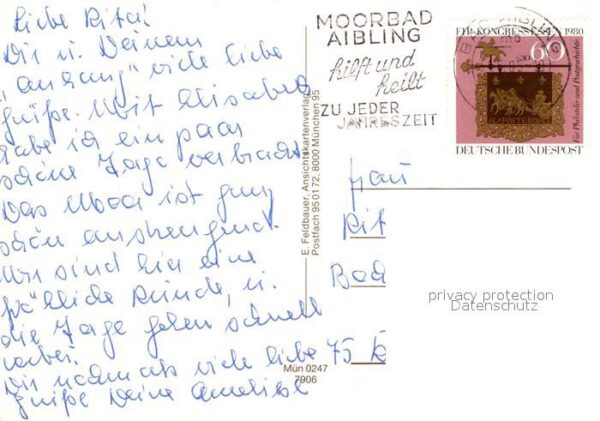 Liebe Rita!
Dir u. Deinem
"Anhang" viele liebe
Grüße. Mit Elisabeth
habe ich ein paar
schöne Tage verbracht
Das Moor ist ganz
schön anstrengend.
Wir sind hier eine
fröhliche Runde, u.
die Tage gehen schnell
vorbei.
Dir nochmals viele liebe
Grüße Deine
E. Feldbauer, Ansichtskartenverlag
Postfach 950172, 8000 München 95
Mün 0247
7906
MOORBAD
AIBLING
hilft und
heilt
ZU JEDER
JAHRESZEIT
BAD AIBLING
FIP-KONGRESS ESSEN 1980
60
Für Philatelie und Postgeschichte
DEUTSCHE BUNDESPOST
Frau
Rit
Bad
75
privacy protection
Datenschutz